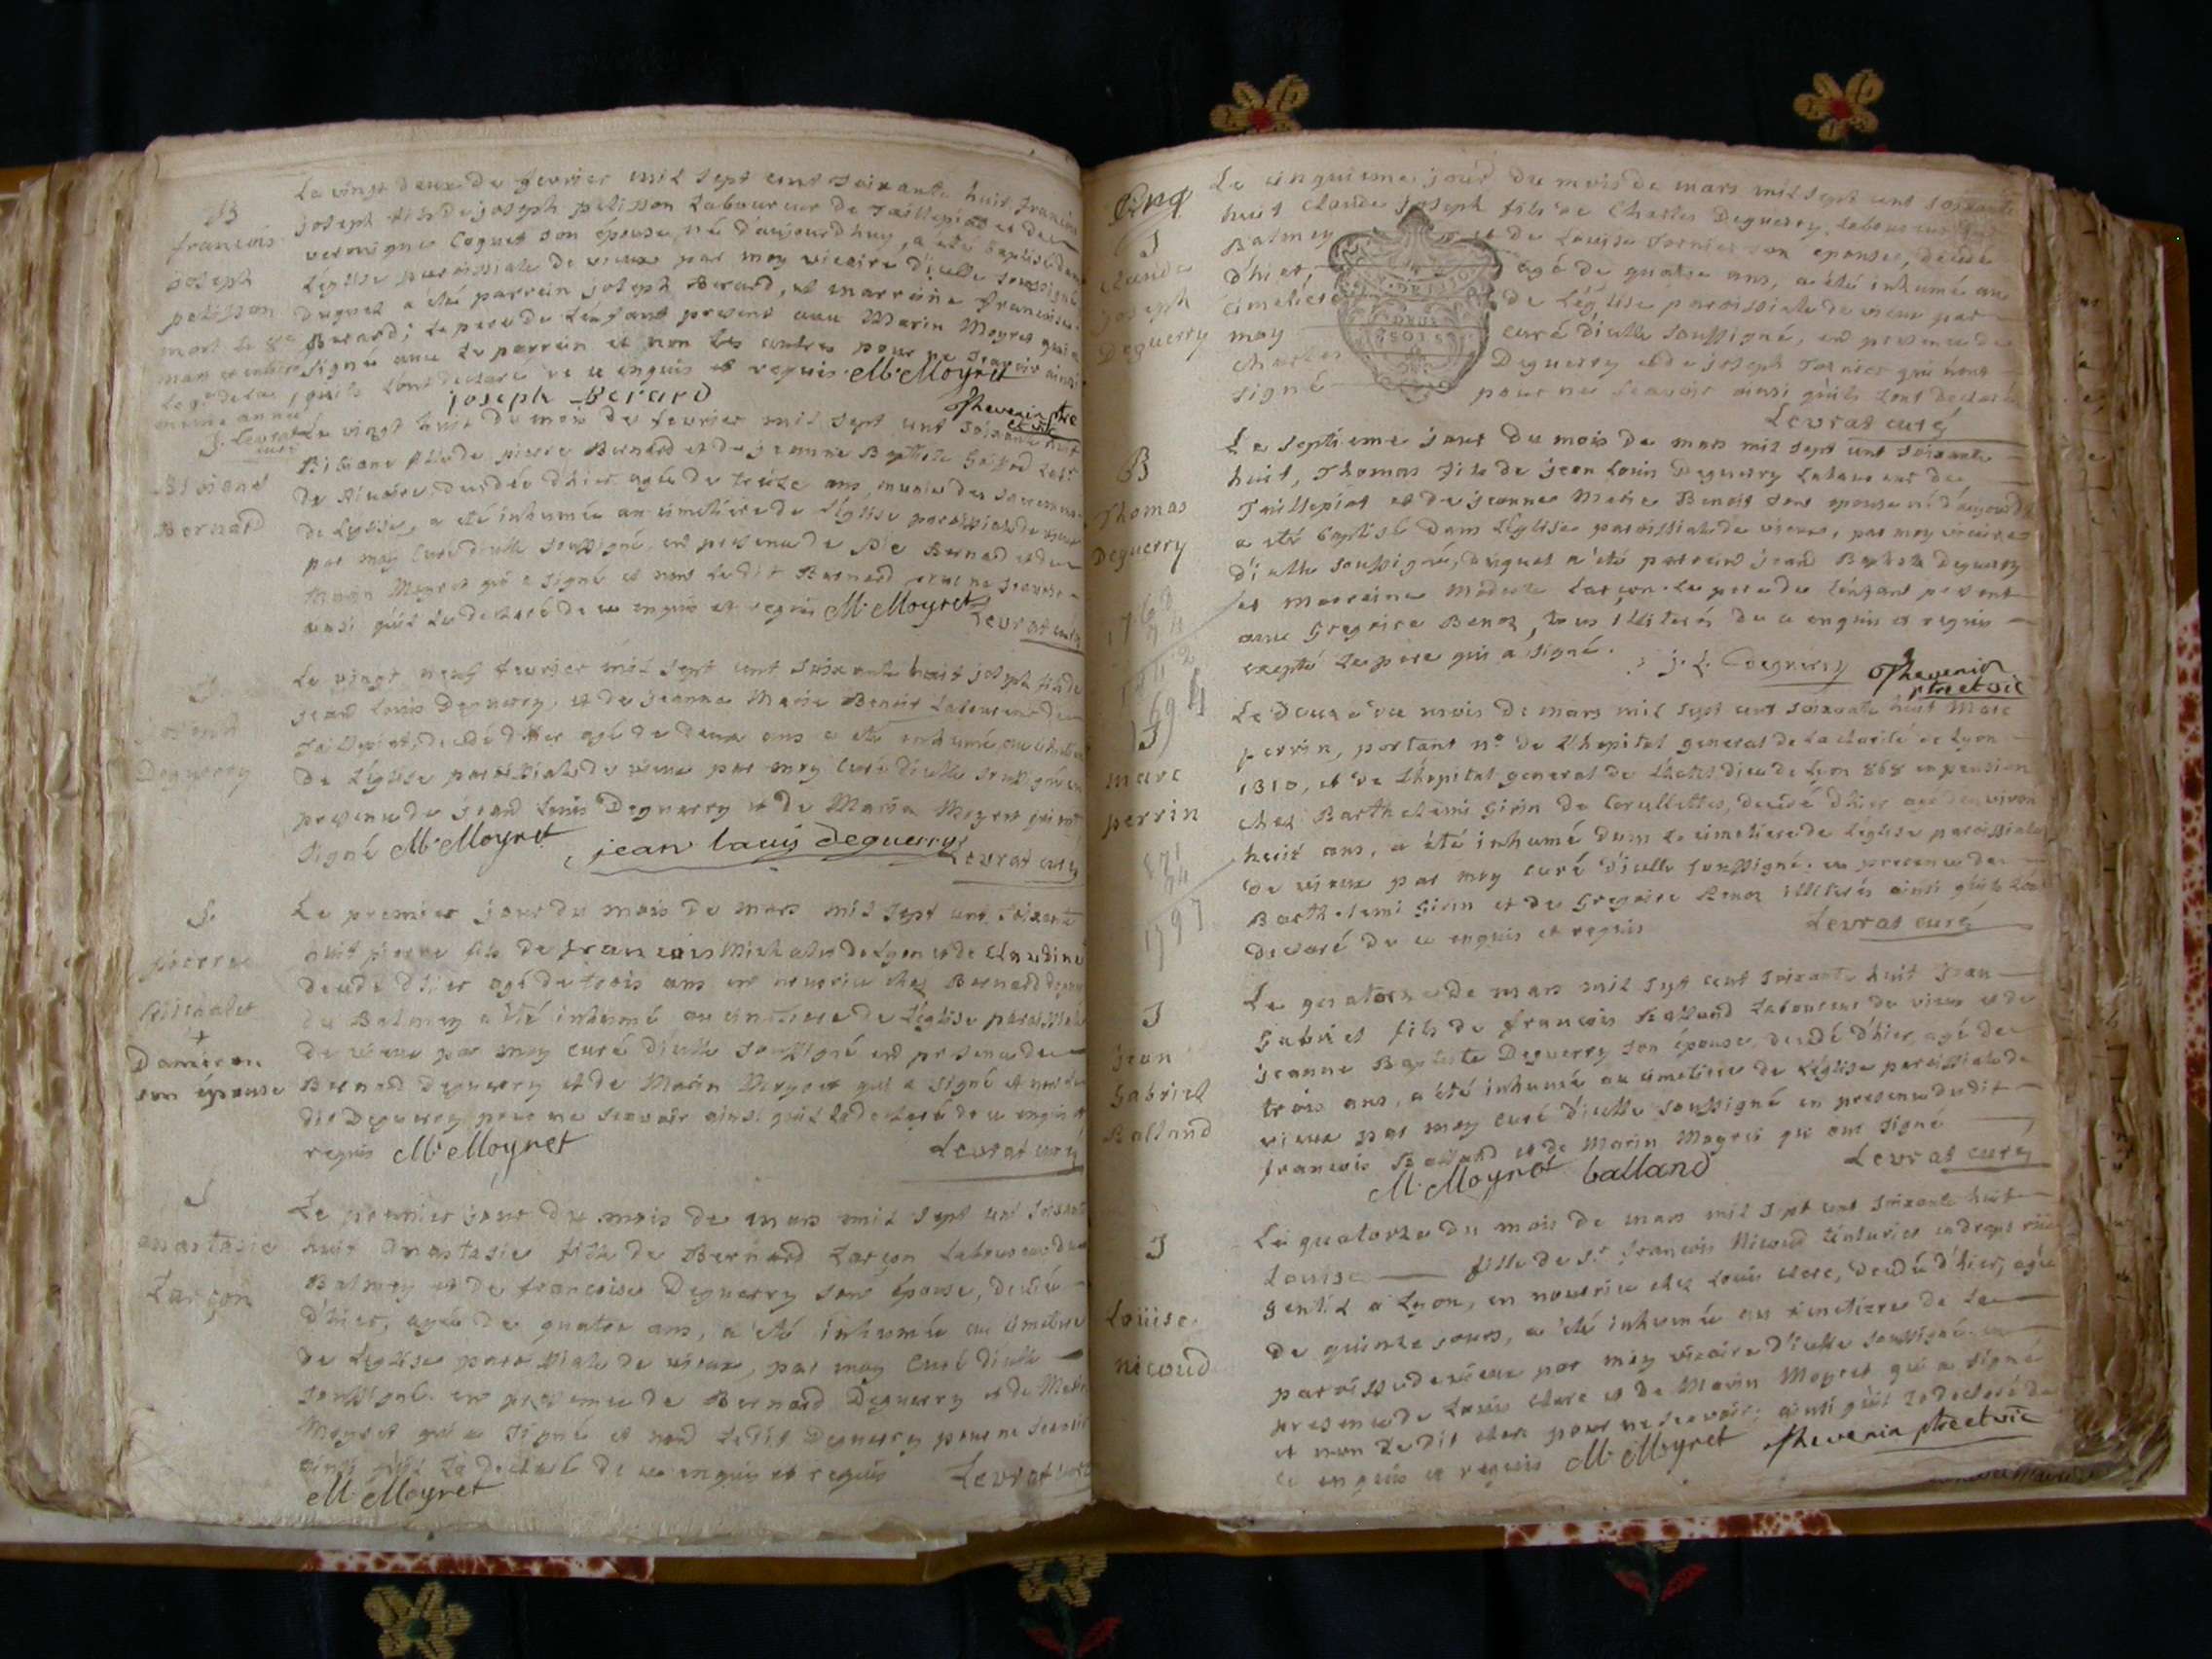 B
francois
joseph
pelisson
mort le 8e
mars et inhumé
le 9e de la
meme année
J. Levrat
curé
Le vingt deux de fevrier mil sept cent soixante huit francois
joseph fils de joseph pelisson Laboureur de Taillepiat et de
veronique Coquet son epouse, né d'aujourdhuy, a eté baptisé dans
L'église paroissiale de vieux par moy vicaire d'icelle soussigné
duquel a été parrein joseph Berard, et marreine francoise
Berard; Le pere de L'enfant present avec Marin Moyret qui a
signé avec Le parrein et non Les autres pour ne scavoir ainsi
quils Lont declaré de ce enquis et requis M. Moyret
joseph Berard
Thevenin ptre
et vic
Bernard
Le vingt huit du mois de fevrier mil sept cent soixante huit
Bibiane fille de pierre Bernard et de jeanne Baptiste
de decedée d'hier agée de treize ans, munie des sacremens
de L'eglise, a eté inhumée au cimetiere de L'église paroissiale de vieux
par moy Curé d'icelle soussigné, en presence de p.re Bernard et de
Marin Moyret qui a signé et non Ledit Bernard pour ne scavoir
ainsi qu'il La declaré de ce enquis et requis M. Moyret
Levrat curé
J
joseph
Deguerry
Le vingt neuf fevrier mil sept cent soixante huit joseph fils de
jean Louis Deguerry, et de jeanne Marie Benoit Laboureur de
Taillepiat, decedé d'hier agé de deux ans a eté inhumé au cimetiere
de L'église paroissiale de vieux par moy Curé d'icelle soussigné en
presence de jean Louis Deguerry et de Marin Moyret qui ont
signé M. Moyret
jean louis deguerry
Levrat curé
J
pierre
Michalet
+
Dameron
son épouse
Le premier jour du mois de mars mil sept cent soixante
huit pierre fils de francois Michalet de Lyon et de Claudine
decedé d'hier agé de trois ans en nourrice chez Bernard deguerry
du Balmey a été inhumé au cimetiere de L'église paroissiale
de vieux par moy curé d'icelle soussigné en presence de
Bernard Deguerry et de Marin Moyret qui a signé et non Le
dit Deguerry pour ne scavoir ainsi qu'il La declaré de ce enquis et
requis M. Moyret
Levrat curé
J
anastasie
Larçon
Le premier jour du mois de mars mil sept cent soixante
huit Anastasie fille de Bernard Larçon Laboureur du
Balmey et de francoise Deguerry son épouse, decedée
d'hier, agée de quatre ans, a été inhumée au cimetiere
de L'eglise paroissiale de vieux, par moy Curé d'icelle
soussigné en presence de Bernard Deguerry et de Marin
Moyret qui a signé et non Ledit Deguerry pour ne scavoir
ainsi qu'il La declaré de ce enquis et requis
Levrat curé
M. Moyret
Cinq
J
Claude
joseph
Deguerry
Le cinquieme jour du mois de mars mil sept cent soixante
huit Claude joseph fils de Charles Deguerry Laboureur du
Balmey et de Louise Tornier son epouse, decedé
d'hier, agé de quatre ans, a été inhumé au
cimetiere de L'église paroissiale de vieux par
moy curé d'icelle soussigné, en presence de
Charles Deguerry et de joseph Tornier qui n'ont
signé pour ne scavoir ainsi qu'ils Lont declaré
Levrat curé
B
Thomas
Deguerry
Le septieme jour du mois de mars mil sept cent soixante
huit, Thomas fils de jean Louis Deguerry Laboureur de
Taillepiat et de jeanne Marie Benoit son epouse né d'aujourd'huy
a eté baptisé dans L'église paroissiale de vieux, par moy vicaire
d'icelle soussigné, duquel a été parrein jean Baptiste Deguerry
et marreine Modeste Larçon. Le pere de L'enfant present
avec Gregoire Benoz, tous illiterés de ce enquis et requis
excepté Le pere qui a signé.
j. L. Deguerry
Thevenin
ptre et vic
J
marc
perrin
Le douze du mois de mars mil sept cent soixante huit Marc
perrin, portant n° de L'hopital general de La charité de Lyon
1310, et de L'hopital general de L'hotel dieu de Lyon 868 en pension
chez Barthelemi Girin de Cerullettes, decedé d'hier agé denviron
huit ans, a été inhumé dans Le cimetiere de L'église paroissiale
de vieux par moy curé d'icelle soussigné en presence de
Barthelemi Girin et de Gregoire Benoz illiterés ainsi qu'ils Lont
declaré de ce enquis et requis
Levrat curé
J
jean
Gabriel
Balland
Le quatorze de mars mil sept cent soixante huit jean
Gabriel fils de francois Balland Laboureur de vieux et de
jeanne Baptiste Deguerry son épouse, decedé d'hier, agé de
trois ans, a été inhumé au cimetiere de L'église paroissiale de
vieux par moy curé d'icelle soussigné en presence dudit
francois Balland et de Marin Moyret qui ont signé
M. Moyret balland
Levrat curé
J
Loüise
nicoud
Le quatorze du mois de mars mil sept cent soixante huit
Louise fille de Sr. francois Nicoud tinturier en draps rüe
gentil a Lyon, en nourrice chez Louis clerc, decedée d'hier, agée
de quinze jours, a été inhumée au cimetiere de La
paroisse de vieux par moy vicaire d'icelle soussigné en
presence de Louis clerc et de Marin Moyret qui a signé
et non Ledit clerc pour ne scavoir, ainsi qu'il La declaré de
ce enquis et requis M. Moyret Thevenin ptre et vic